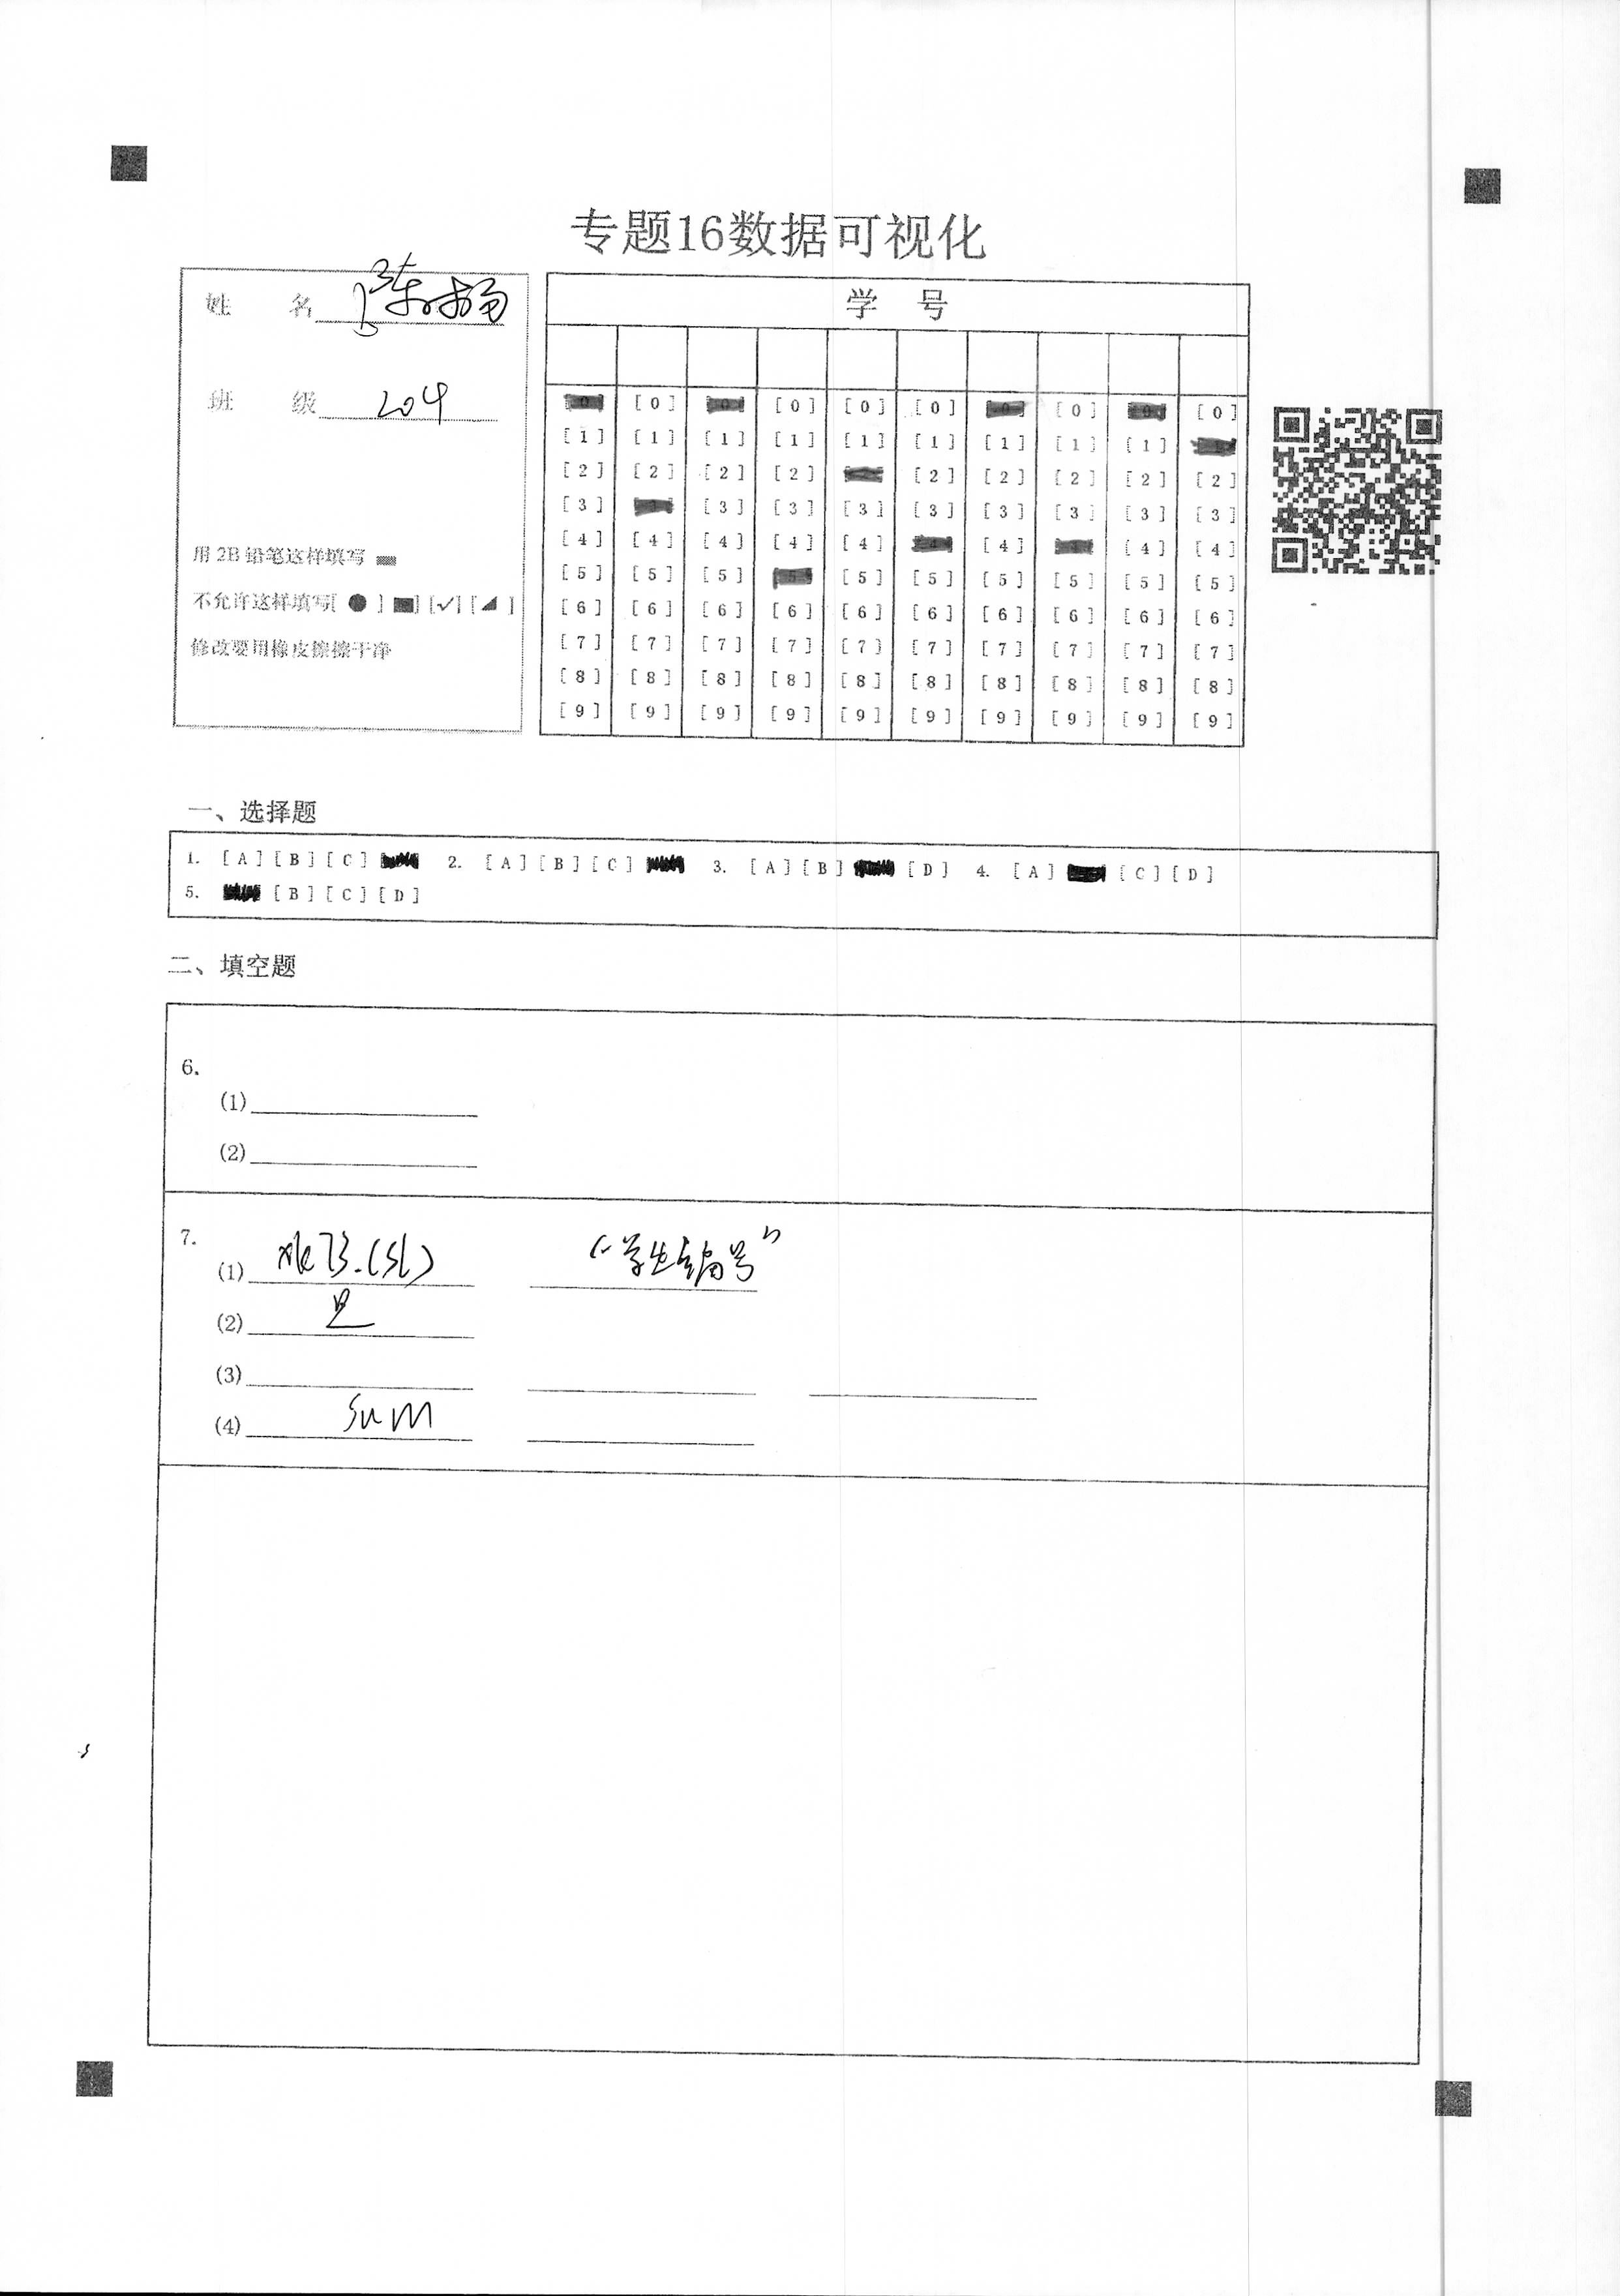 专题16数据可视化
姓 名 陈扬
班 级 204
用 2B 铅笔这样填写
不允许这样填写[ ● ] ■] [✓] [◢ ]
修改要用橡皮擦擦干净
学 号
[0] [0] [0] [0] [0] [0] [0]
[1] [1] [1] [1] [1] [1] [1] [1] [1]
[2] [2] [2] [2] [2] [2] [2] [2] [2]
[3] [3] [3] [3] [3] [3] [3] [3] [3]
[4] [4] [4] [4] [4] [4] [4] [4]
[5] [5] [5] [5] [5] [5] [5] [5] [5]
[6] [6] [6] [6] [6] [6] [6] [6] [6] [6]
[7] [7] [7] [7] [7] [7] [7] [7] [7] [7]
[8] [8] [8] [8] [8] [8] [8] [8] [8] [8]
[9] [9] [9] [9] [9] [9] [9] [9] [9] [9]
一、选择题
1. [A] [B] [C] 2. [A] [B] [C] 3. [A] [B] [D] 4. [A] [C] [D]
5. [B] [C] [D]
二、填空题
6.
(1)
(2)
7.
(1) "学生编号"
(2)
(3)
(4) sum